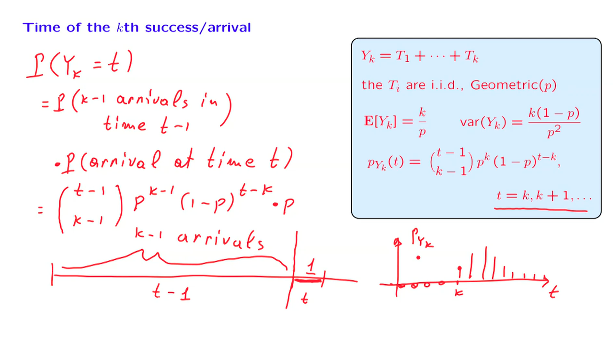 Time of the kth success/arrival
P(Y_k = t)
= P(k-1 arrivals in time t-1)
· P(arrival at time t)
= \binom{t-1}{k-1} p^{k-1} (1-p)^{t-k} · p
k-1 arrivals
t-1
1
t
Y_k = T_1 + ··· + T_k
the T_i are i.i.d., Geometric(p)
E[Y_k] = \frac{k}{p} var(Y_k) = \frac{k(1-p)}{p^2}
p_{Y_k}(t) = \binom{t-1}{k-1} p^k (1-p)^{t-k},
t = k, k+1, ...
P_{Y_k}
k
t